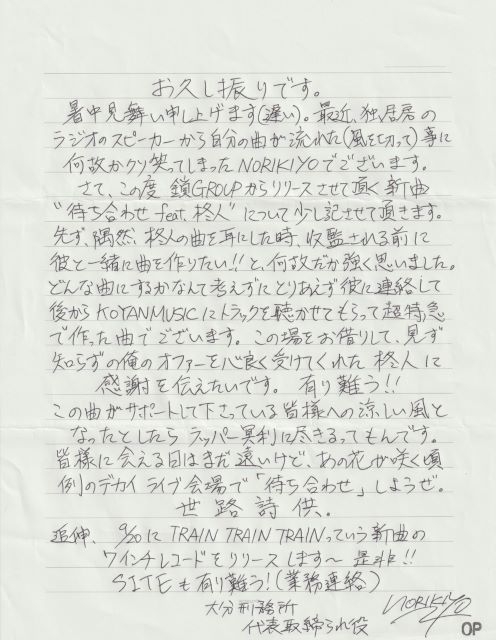 お久し振りです。
暑中見舞い申し上げます(遅い)。最近、独居房の
ラジオのスピーカーから自分の曲が流れた(風を切って)事に
何故かクソ笑ってしまったNORIKIYOでございます。
さて、この度 鎖GROUPからリリースさせて頂く新曲
"待ち合わせ feat. 柊人"について少し記させて頂きます。
先ず、偶然、柊人の曲を耳にした時、収監される前に
彼と一緒に曲を作りたい!!と、何故だか強く思いました。
どんな曲にするかなんて考えずにとりあえず彼に連絡して
後からKOYANMUSICにトラックを聴かせてもらって超特急
で作った曲でございます。この場をお借りして、見ず
知らずの俺のオファーを心良く受けてくれた 柊人に
感謝を伝えたいです。 有り難う!!
この曲がサポートして下さっている皆様への涼しい風と
なったとしたら ラッパー冥利に尽きるってもんです。
皆様に会える日はまだ遠いけど、あの花が咲く頃
例のデカイ ライブ会場で「待ち合わせ」しようぜ。
世路詩供.
追伸、9/20に TRAIN TRAIN TRAINっていう新曲の
7インチレコードをリリースします〜 是非!!
SITEも有り難う!(業務連絡)
大分刑務所
代表取締られ役 NORIKIYO
OP